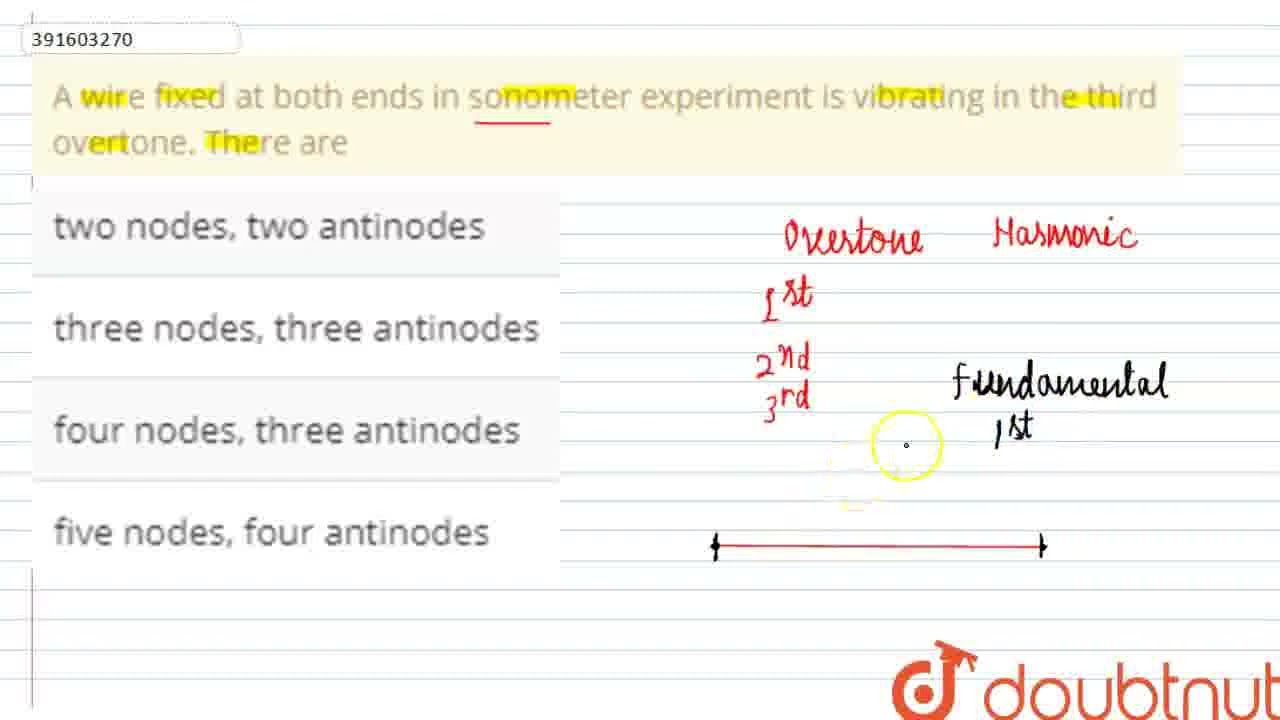 391603270
A wire fixed at both ends in sonometer experiment is vibrating in the third
overtone. There are
two nodes, two antinodes
three nodes, three antinodes
four nodes, three antinodes
five nodes, four antinodes
Overtone Harmonic
1st
2nd
3rd
Fundamental
1st
doubtnut